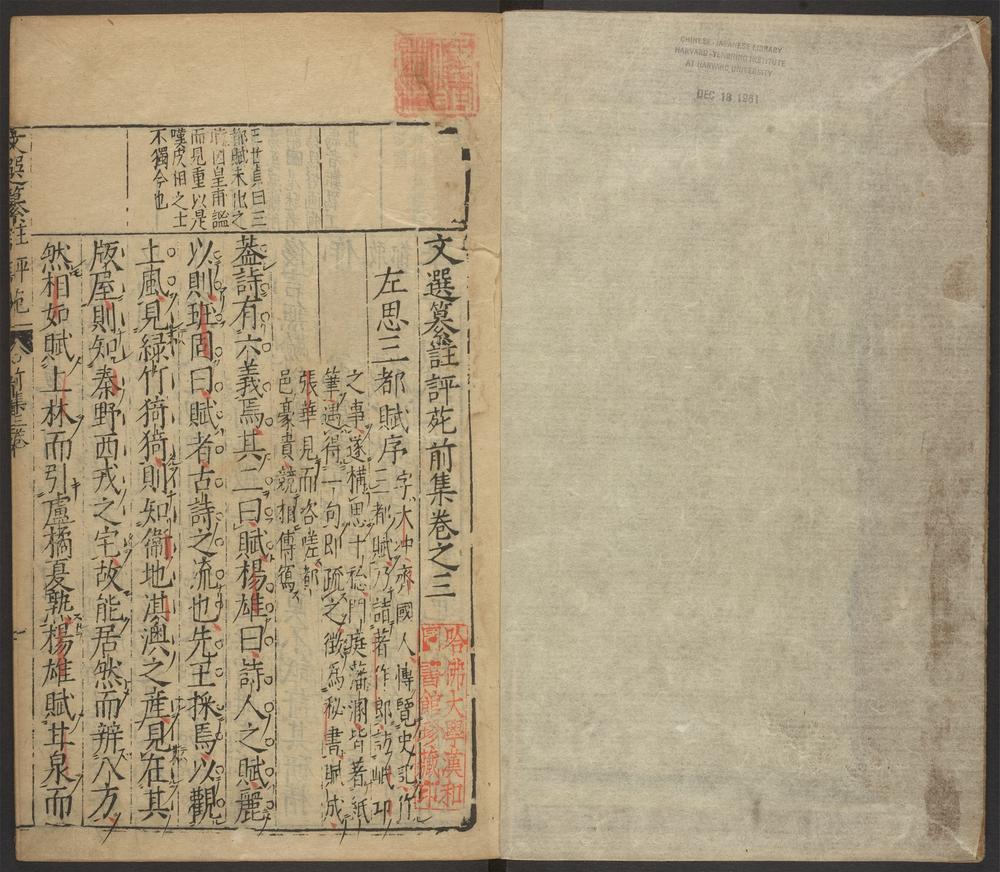 CHINESE-JAPANESE LIBRARY
HARVARD-YENCHING INSTITUTE
AT HARVARD UNIVERSITY
DEC 18 1961
文選纂註評苑前集卷之三
哈佛大學漢和
圖書館珍藏印
左思三都賦序
字太冲齊國人博覽史記作
三都賦乃詣著作郎訪岷邛
之事遂構思十稔門庭藩溷皆著紙
筆遇得一句即疏之徵為秘書賦成
張華見而咨嗟都
邑豪貴競相傳寫
王世貞曰三
都賦未出之
時因皇甫謐
而見重以是
嘆皮相之士
不獨今也
葢詩有六義焉其二曰賦楊雄曰詩人之賦麗
以則班固曰賦者古詩之流也先王採焉以觀
土風見綠竹猗猗則知衞地淇澳之產見在其
版屋則知秦野西戎之宅故能居然而辨八方
然相如賦上林而引盧橘夏熟楊雄賦甘泉而
文選纂註評苑
前集三卷